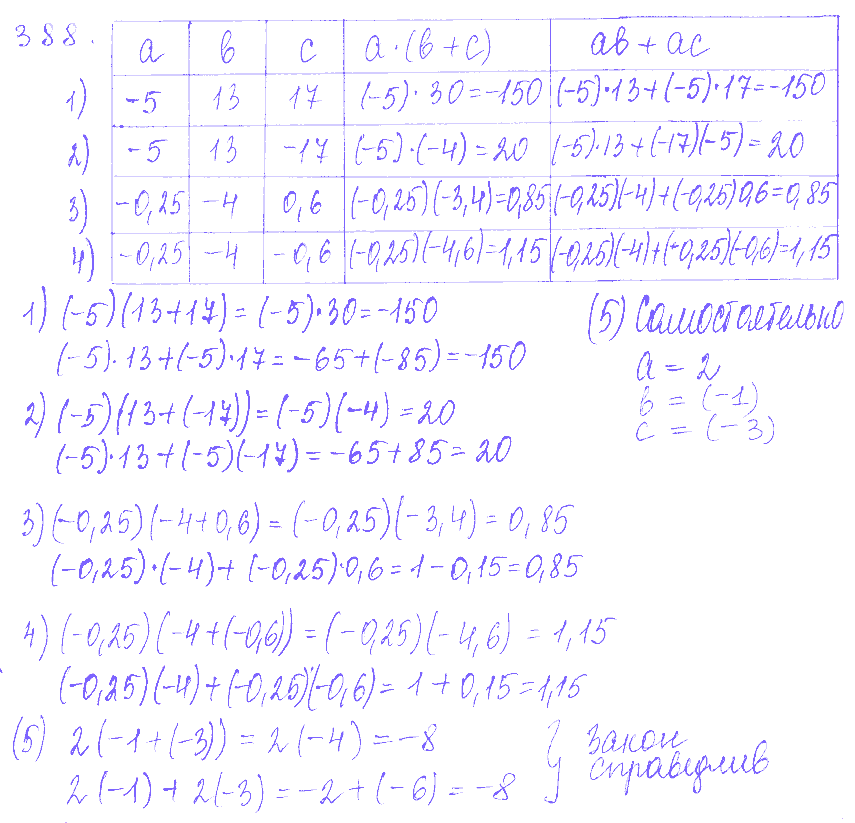 388.
a в c a·(в+c) ав + ac
1) -5 13 17 (-5)·30=-150 (-5)·13+(-5)·17=-150
2) -5 13 -17 (-5)·(-4)=20 (-5)·13+(-17)(-5)=20
3) -0,25 -4 0,6 (-0,25)(-3,4)=0,85 (-0,25)(-4)+(-0,25)0,6=0,85
4) -0,25 -4 -0,6 (-0,25)(-4,6)=1,15 (-0,25)(-4)+(-0,25)(-0,6)=1,15
1) (-5)(13+17)=(-5)·30=-150
(-5)·13+(-5)·17=-65+(-85)=-150
(5) Самостоятельно
a = 2
в = (-1)
c = (-3)
2) (-5)(13+(-17))=(-5)(-4)=20
(-5)·13+(-5)(-17)=-65+85=20
3) (-0,25)(-4+0,6)=(-0,25)(-3,4)=0,85
(-0,25)·(-4)+(-0,25)·0,6=1-0,15=0,85
4) (-0,25)(-4+(-0,6))=(-0,25)(-4,6)=1,15
(-0,25)(-4)+(-0,25)(-0,6)=1+0,15=1,15
(5) 2(-1+(-3))=2(-4)=-8
2(-1)+2(-3)=-2+(-6)=-8
} закон
справедлив